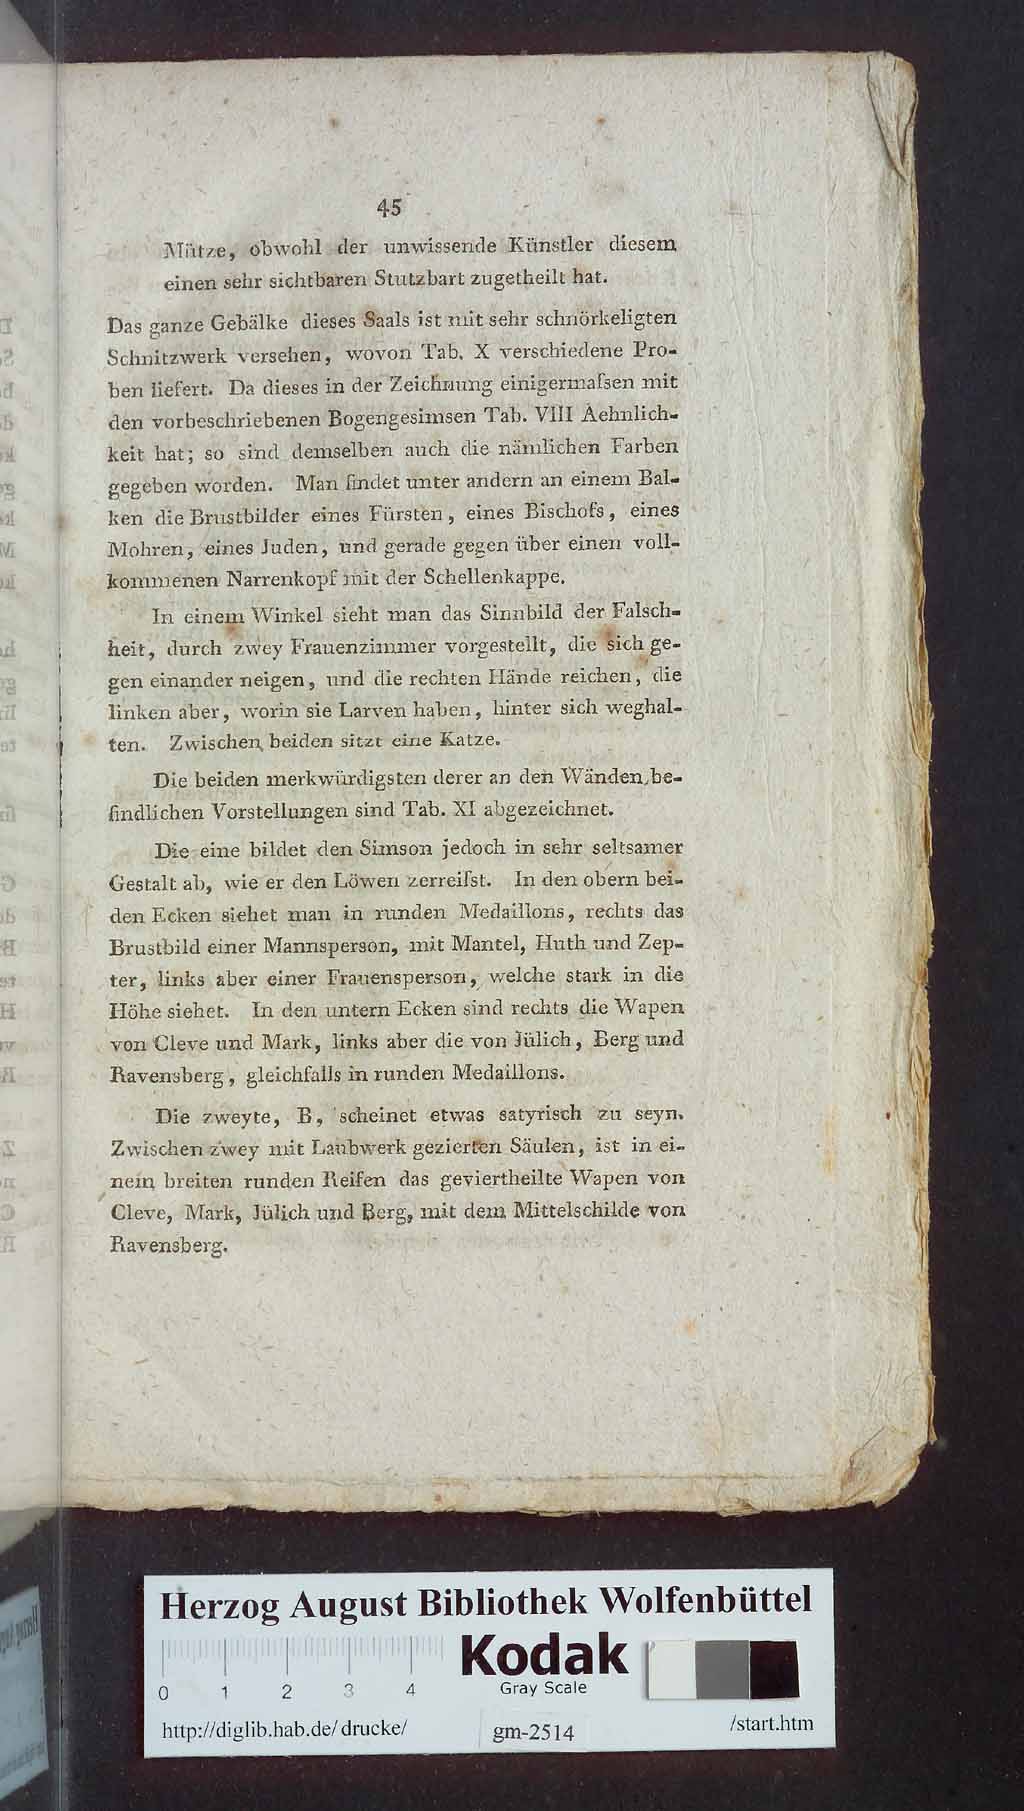 45
Mütze, obwohl der unwissende Künstler diesem
einen sehr sichtbaren Stutzbart zugetheilt hat.
Das ganze Gebälke dieses Saals ist mit sehr schnörkeligten
Schnitzwerk versehen, wovon Tab. X verschiedene Pro-
ben liefert. Da dieses in der Zeichnung einigermaſsen mit
den vorbeschriebenen Bogengesimsen Tab. VIII Aehnlich-
keit hat; so sind demselben auch die nämlichen Farben
gegeben worden. Man findet unter andern an einem Bal-
ken die Brustbilder eines Fürsten, eines Bischofs, eines
Mohren, eines Juden, und gerade gegen über einen voll-
kommenen Narrenkopf mit der Schellenkappe.
In einem Winkel sieht man das Sinnbild der Falsch-
heit, durch zwey Frauenzimmer vorgestellt, die sich ge-
gen einander neigen, und die rechten Hände reichen, die
linken aber, worin sie Larven haben, hinter sich weghal-
ten. Zwischen beiden sitzt eine Katze.
Die beiden merkwürdigsten derer an den Wänden be-
findlichen Vorstellungen sind Tab. XI abgezeichnet.
Die eine bildet den Simson jedoch in sehr seltsamer
Gestalt ab, wie er den Löwen zerreiſst. In den obern bei-
den Ecken siehet man in runden Medaillons, rechts das
Brustbild einer Mannsperson, mit Mantel, Huth und Zep-
ter, links aber einer Frauensperson, welche stark in die
Höhe siehet. In den untern Ecken sind rechts die Wapen
von Cleve und Mark, links aber die von Jülich, Berg und
Ravensberg, gleichfalls in runden Medaillons.
Die zweyte, B, scheinet etwas satyrisch zu seyn.
Zwischen zwey mit Laubwerk gezierten Säulen, ist in ei-
nem breiten runden Reifen das geviertheilte Wapen von
Cleve, Mark, Jülich und Berg, mit dem Mittelschilde von
Ravensberg.
Herzog August Bibliothek Wolfenbüttel
Kodak
Gray Scale
0 1 2 3 4
http://diglib.hab.de/drucke/ gm-2514 /start.htm